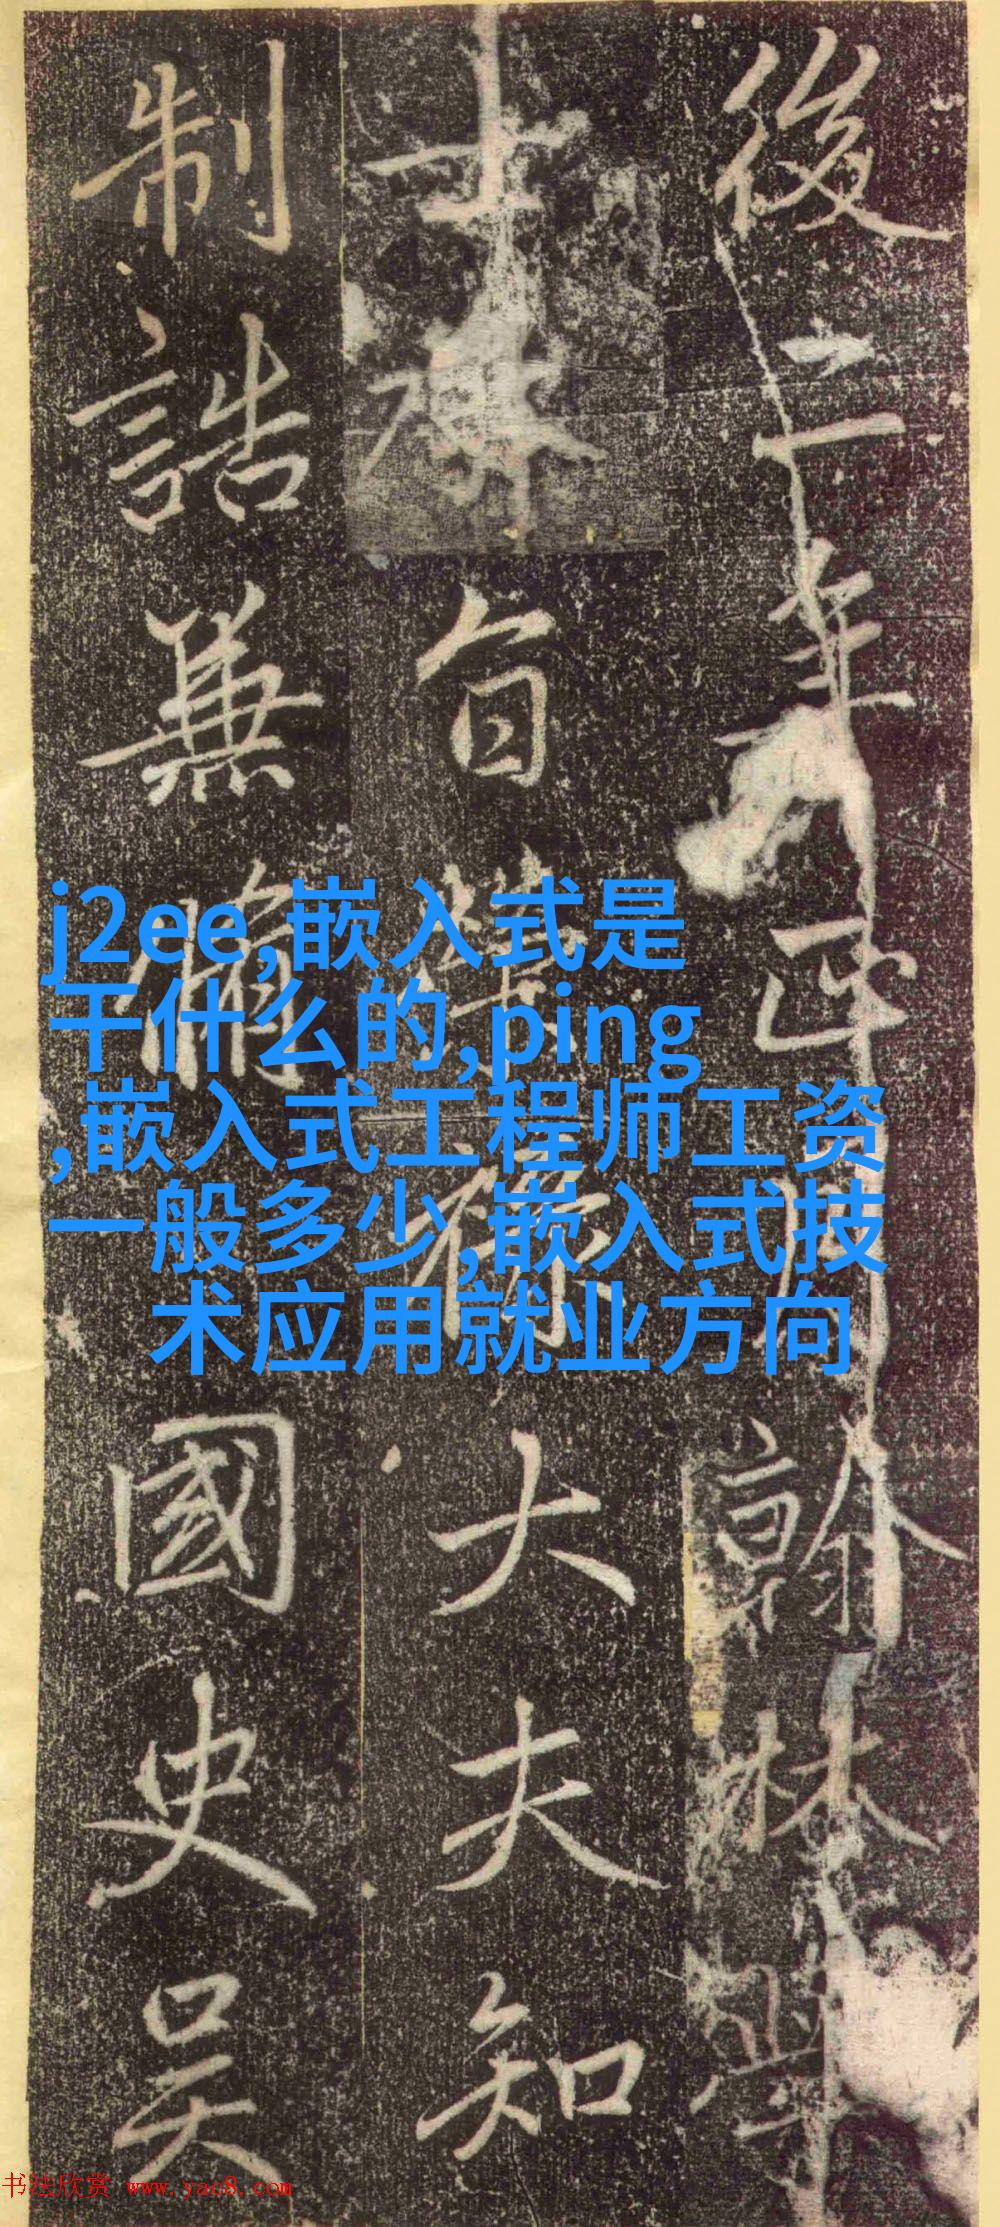 後二年正月翰林學
士承旨榮祿大夫知
制誥兼脩國史吴
j2ee,嵌入式是
干什么的,ping
,嵌入式工程师工资
一般多少,嵌入式技
术应用就业方向
书法欣赏 www.yac8.com